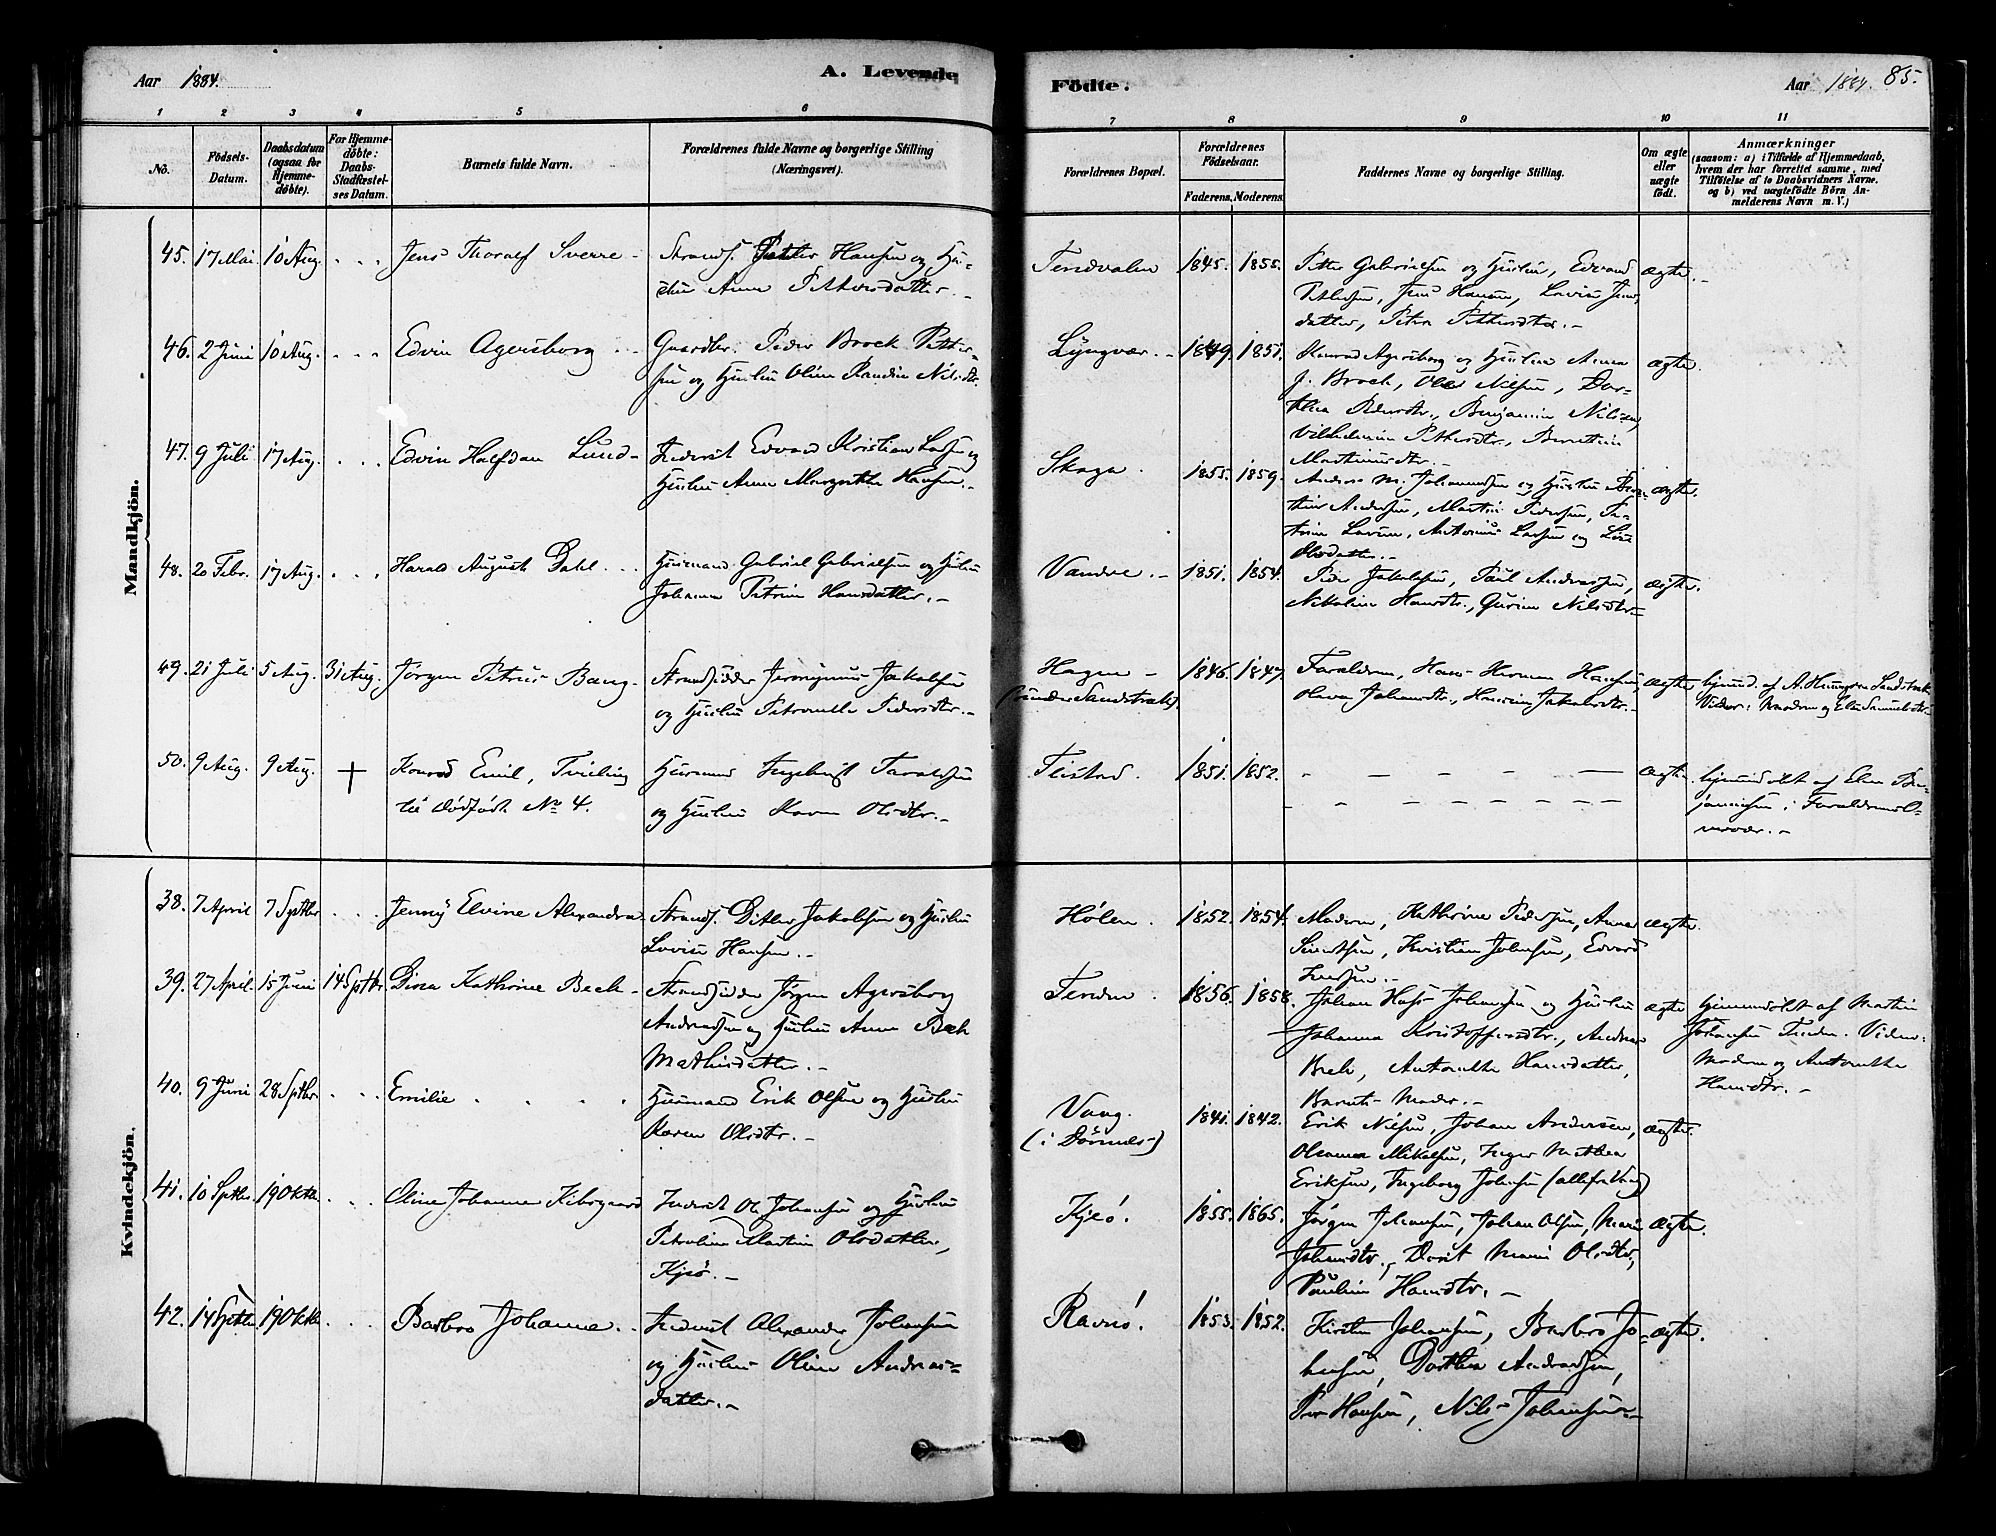 Aar 1884.
A. Levende
Födte.
Aar 1884. 85.
1 2 3 4 5 6 7 8 9 10 11
No.
Födsels-
Datum.
Daabsdatum
(ogsaa for
Hjemme-
döbte).
For Hjemme-
döbte:
Daabs-
Stadfæstel-
ses Datum.
Barnets fulde Navn.
Forældrenes fulde Navne og borgerlige Stilling
(Næringsvei).
Forældrenes Bopæl.
Forældrenes
Födselsaar.
Faderens. Moderens.
Faddernes Navne og borgerlige Stilling.
Om ægte
eller
uægte
födt.
Anmærkninger
(saasom: a) i Tilfælde af Hjemmedaab,
hvem der har forrettet samme, med
Tilföielse af to Daabsvidners Navne,
og b) ved uægtefödte Börn An-
melderens Navn m. V.)
Mandkjön.
45. 17 Mai 10 Aug. Jens Thoralf Sverre
Strands. Petter Hansen og Hu-
stru Anne Pettersdatter.
Tendvalen 1845. 1855.
Petter Gabrielsen og Hustru, Edvard
Pettersen, Jens Hansen, Lovise Jens
datter, Petra Pettersdtr.
ægte.
46. 2 Juni 10 Aug. Edvin Agersborg
Gaardbr. Peder Brock Petter-
sen og Hustru Oline Nilsdtr.
Lyngvær. 1849. 1851.
Konrad Agersborg og Hustru Anna
J. Brock, Ole Nilsen, Dor-
thea Pedersdtr., Benjamin Nilsen,
Vilhelmine Pettersdtr., Berntine
Martinusdtr.
ægte.
47. 9 Juli 17 Aug. Edvin Halfdan Lund
Inderst Edvard Kristian Larsen og
Hustru Anne Margrethe Hansen.
Skaga. 1855. 1859.
Anders M. Johannesen og Hustru Bern-
thine Andersen, Martin Pedersen,
Larsen, Antonius Larsen og
Olsdatter.
ægte.
48. 20 Febr. 17 Aug. Harald August Dahl
Husmand Gabriel Gabrielsen og Hustru
Johanna Petrine Hansdatter.
Vandve. 1851. 1854.
Peder Jakobsen, Paul Andreassen,
Nikoline Hansdtr., Gurine Nilsdtr.
ægte.
49. 21 Juli 5 Aug. 31 Aug. Jörgen Petrus Bang
Strandsidder Jeronymus Jakobsen
og Hustru Petronelle Pedersdtr.
Hagen
(under Sandstrak). 1846. 1847.
Forældrene, Hans Herman Hansen,
Johansdtr., Jakobsdtr.
ægte
hjemd. af A.
Vidner: Moderen og Elen Samuelsdtr.
50. 9 Aug. 9 Aug. + Konrad Emil, Tvilling
til dödfödt No 4.
Husmand Ingebrigt Taraldsen
og Hustru Karen Olsdtr.
Teistad. 1851. 1852.
ægte
hjemmedöbt af Elen Ben-
jaminsen i Forældrenes
nærvær.
Kvindekjön.
38. 7 April 7 Septbr Jenny Elvine Alexandra
Strands. Ditlev Jakobsen og Hustru
Lovise Hansen.
Hölen. 1852. 1854.
Moderen, Kathrine Pedersen, Anna
Kristian Johnsen, Edvard
ægte.
39. 27 April 15 Juni 14 Septbr. Dina Kathrine Bech
Strandsidder Jörgen Agersborg
Andreassen og Hustru Anne Bech
Mathisdatter.
Tenden. 1856. 1858.
Johan Johansen og Hustru
Johanna Kristoffersdtr., Andreas
Bech, Antonette Hansdatter,
Barnets Moder.
ægte
hjemmedöbt af Martin
Johansen Tenden. Vidner:
Moderen og Antonette
Hansdtr.
40. 9 Juni 28 Septbr. Emilie
Husmand Erik Olsen og Hustru
Karen Olsdtr.
Vaag.
(i Dönnes) 1841. 1842.
Erik Nilsen, Johan Andersen,
Mikalsen, Inger Mathea
Eriksen, Ingeborg Johnsen (alle fra Vaag)
ægte.
41. 10 Septbr. 19 Oktbr. Oline Johanne Kibsgaard
Inderst Ol. Johansen og Hustru
Petroline Martine Olsdatter,
Kjeö.
Kjeö. 1855. 1865.
Jörgen Johansen, Johan Olsen, Marie
Johansdtr., Dorit Marie Olsdtr.,
Pauline Hansdtr.
ægte.
42. 14 Septbr. 19 Oktbr. Barbro Johanna
Inderst Alexander Johansen
og Hustru Oline Andreas-
datter.
Ravnö. 1853. 1852.
Kirsten Johansen, Barbro Jo-
hansen, Dorthea Andreassen,
Peter Hansen, Nils Johansen
ægte.